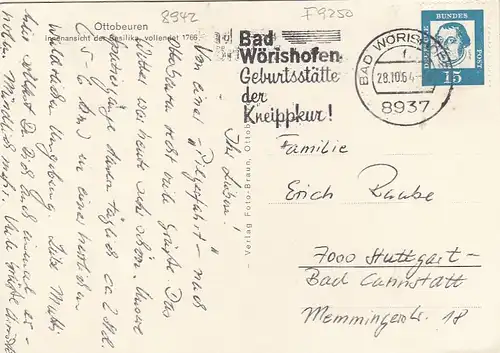 Ottobeuren
Innenansicht der Basilika, vollendet 1766
8942
F9250
Bad
Wörishofen
Geburtsstätte
der
Kneippkur!
BAD WÖRISHOFEN
f
28.10.64
8937
DEUTSCHE BUNDESPOST
15
- Verlag Foto-Braun, Ottob
Ihr Lieben!
Von einer "Pilgerfahrt" nach
Ottobeuren recht viele Grüße. Das
Wetter war heute sehr schön. Unsere
Spaziergänge dauern täglich ca 2 Std.
(5-6 km) in einer herrlichen
waldreichen Umgebung. Liebe Mutti
Familie
Erich Raube
7000 Stuttgart-
Bad Cannstatt
Memmingerstr. 18